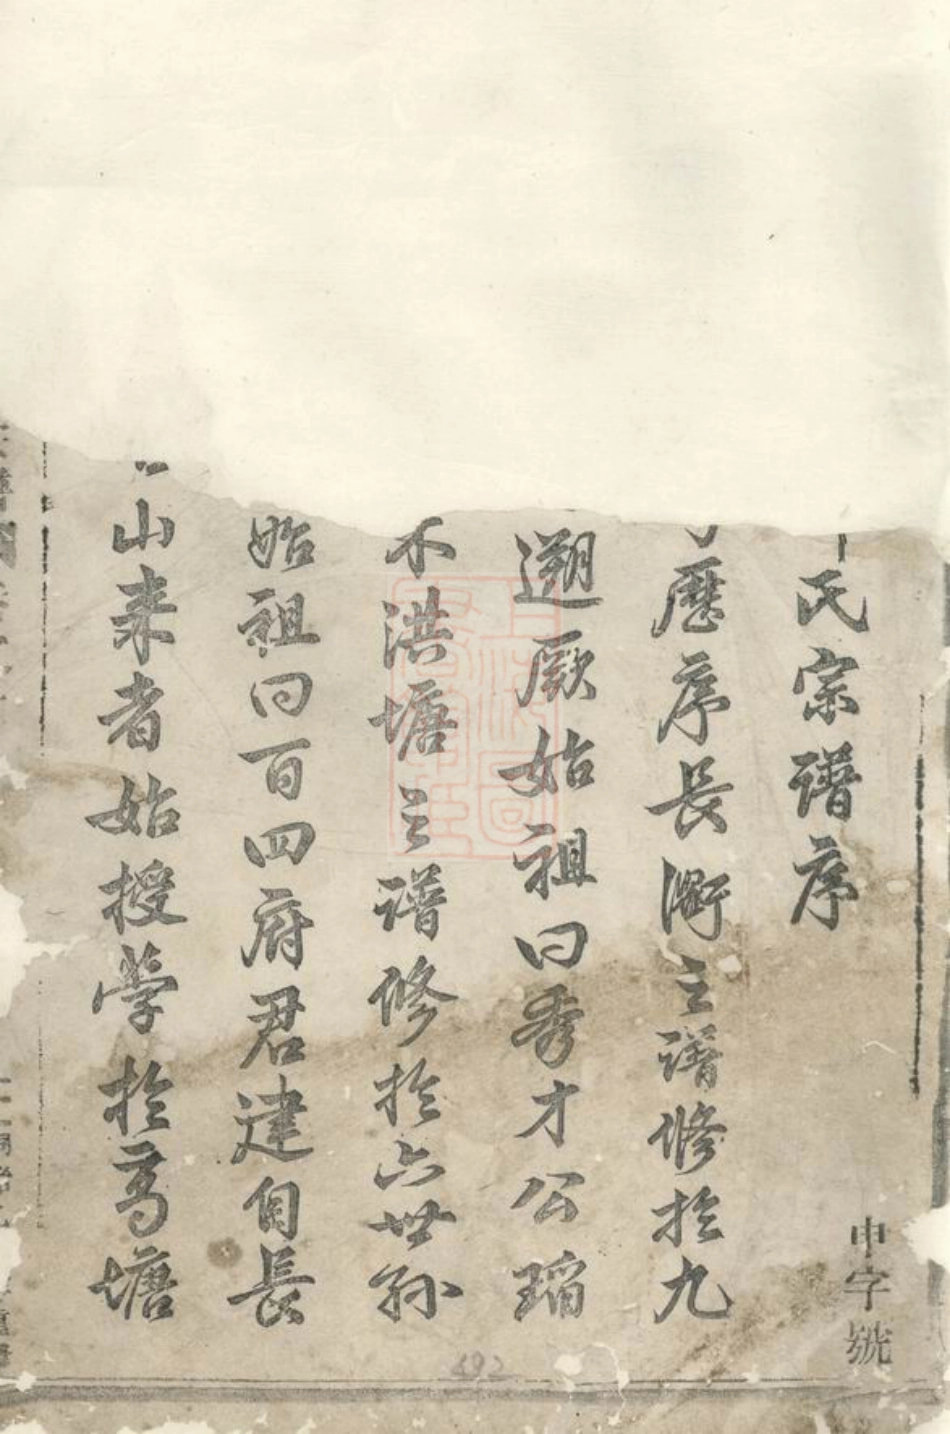 氏宗譜序
申字號
歷序長衖之譜修於九
遡厥始祖曰秀才公瑫
不洪塘之譜修於六世孫
始祖曰百四府君建自長
山來者始授學於高塘
492